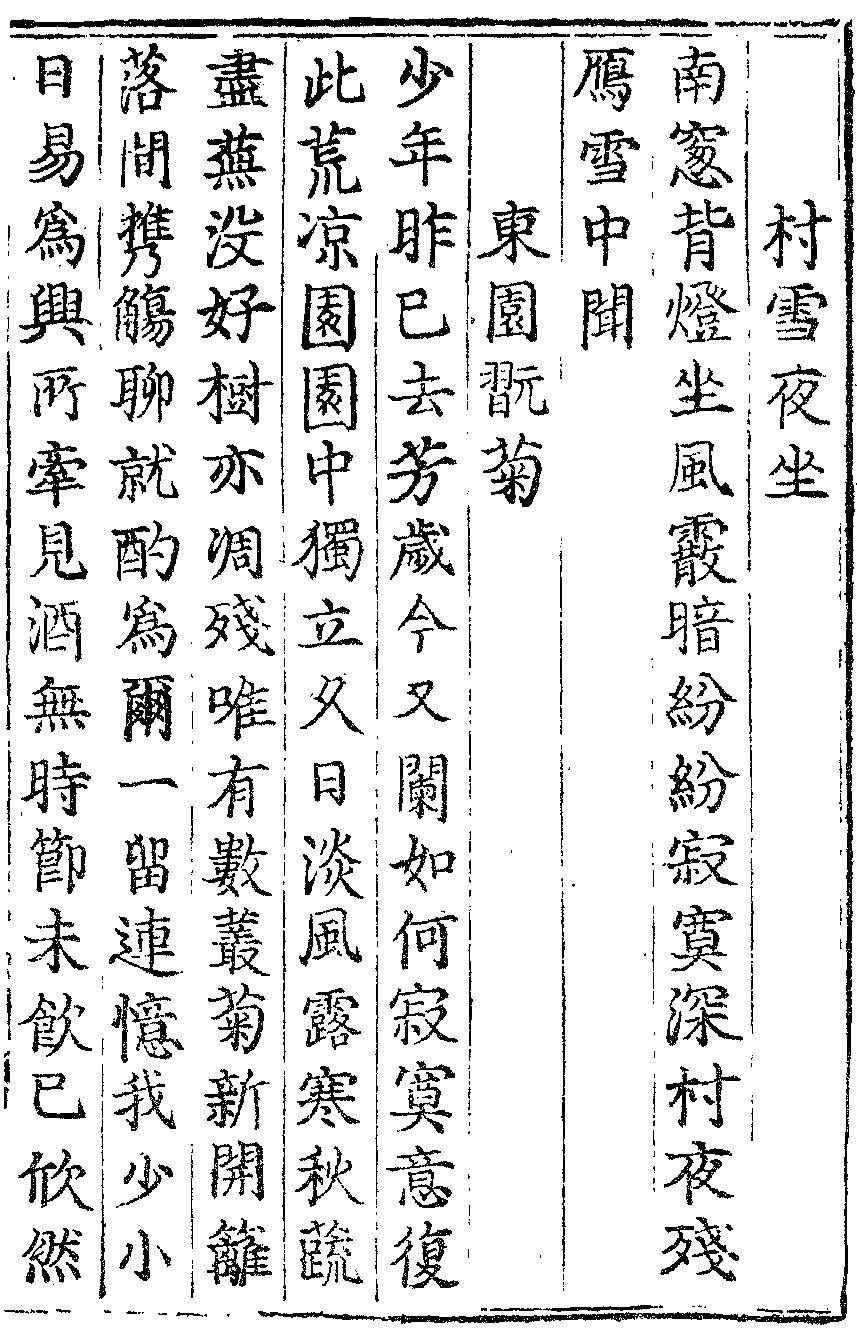 村雪夜坐
南窓背燈坐風霰暗紛紛寂寞深村夜殘
鴈雪中聞
東園翫菊
少年昨已去芳歲今又闌如何寂寞意復
此荒凉園園中獨立久日淡風露寒秋蔬
盡蕪没好樹亦凋殘唯有數叢菊新開籬
落間携觴聊就酌爲爾一留連憶我少小
日易爲興所牽見酒無時節未飲已欣然